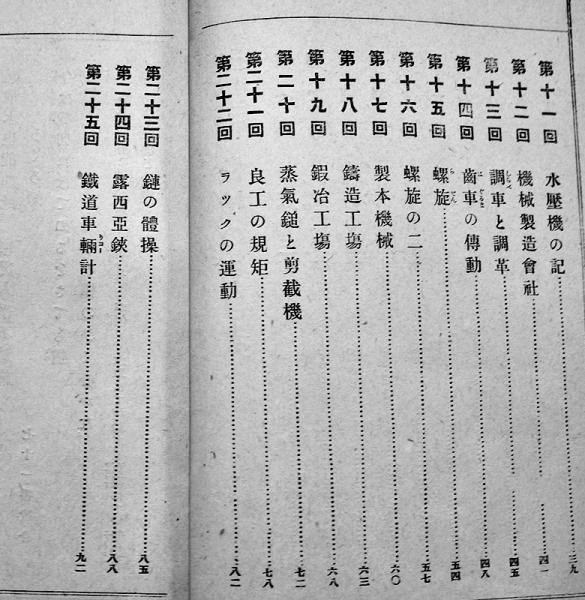 第十一回 水壓機の記 三九
第十二回 機械製造會社 四一
第十三回 調車と調革 四五
第十四回 齒車の傳動 四八
第十五回 螺旋 五四
第十六回 螺旋の二 五七
第十七回 製本機械 六〇
第十八回 鑄造工塲 六三
第十九回 鍜冶工塲 六八
第二十回 蒸氣鎚と剪截機 七二
第二十一回 良工の規矩 七八
第二十二回 ラックの運動 八二
第二十三回 鏈の體操 八五
第二十四回 露西亞鋏 八八
第二十五回 鐵道車輛計 九二